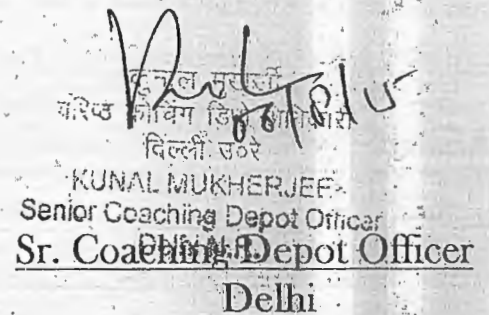 कुनाल मुखर्जी
वरिष्ठ कोचिंग डिपो अधिकारी
दिल्ली उ०रे
KUNAL MUKHERJEE
Senior Coaching Depot Officer
Sr. Coaching Depot Officer
Delhi